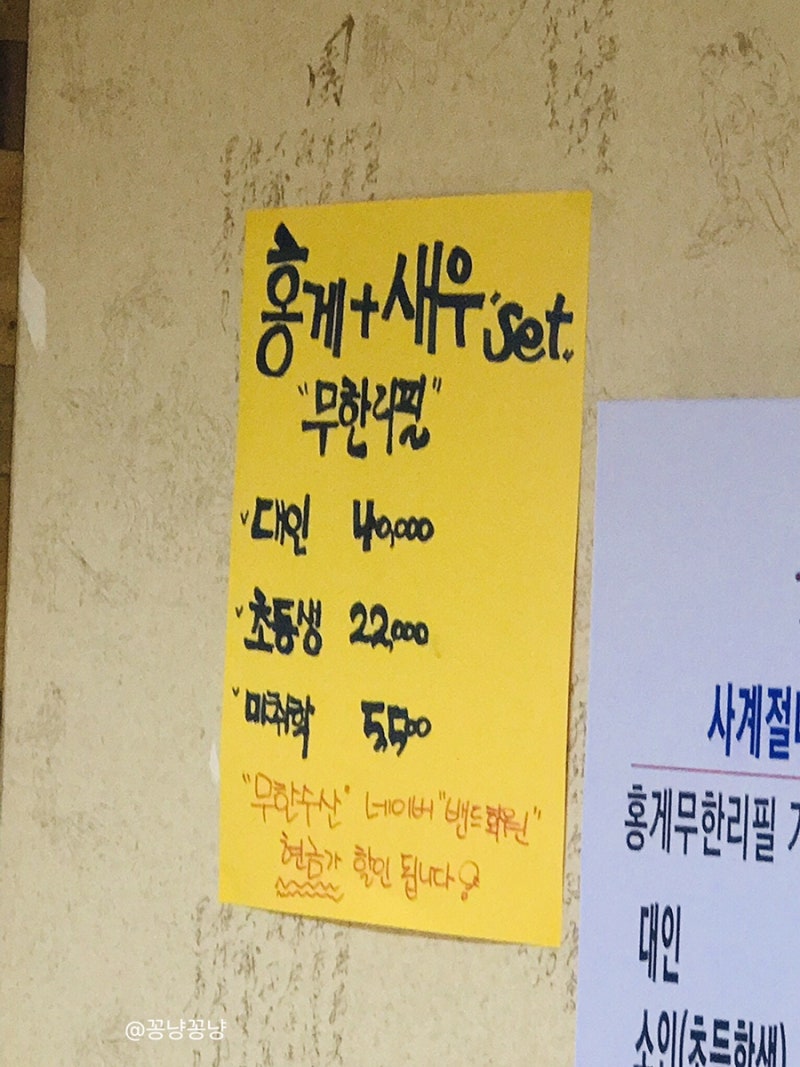 홍게+새우 "set"
"무한리필"
대인 40,000
초등생 22,000
미취학 5,500
"무한수산" 네이버 "밴드회원"
현금가 할인 됩니다
사계절
홍게무한리필
대인
소인(초등학생)
@꽁냥꽁냥